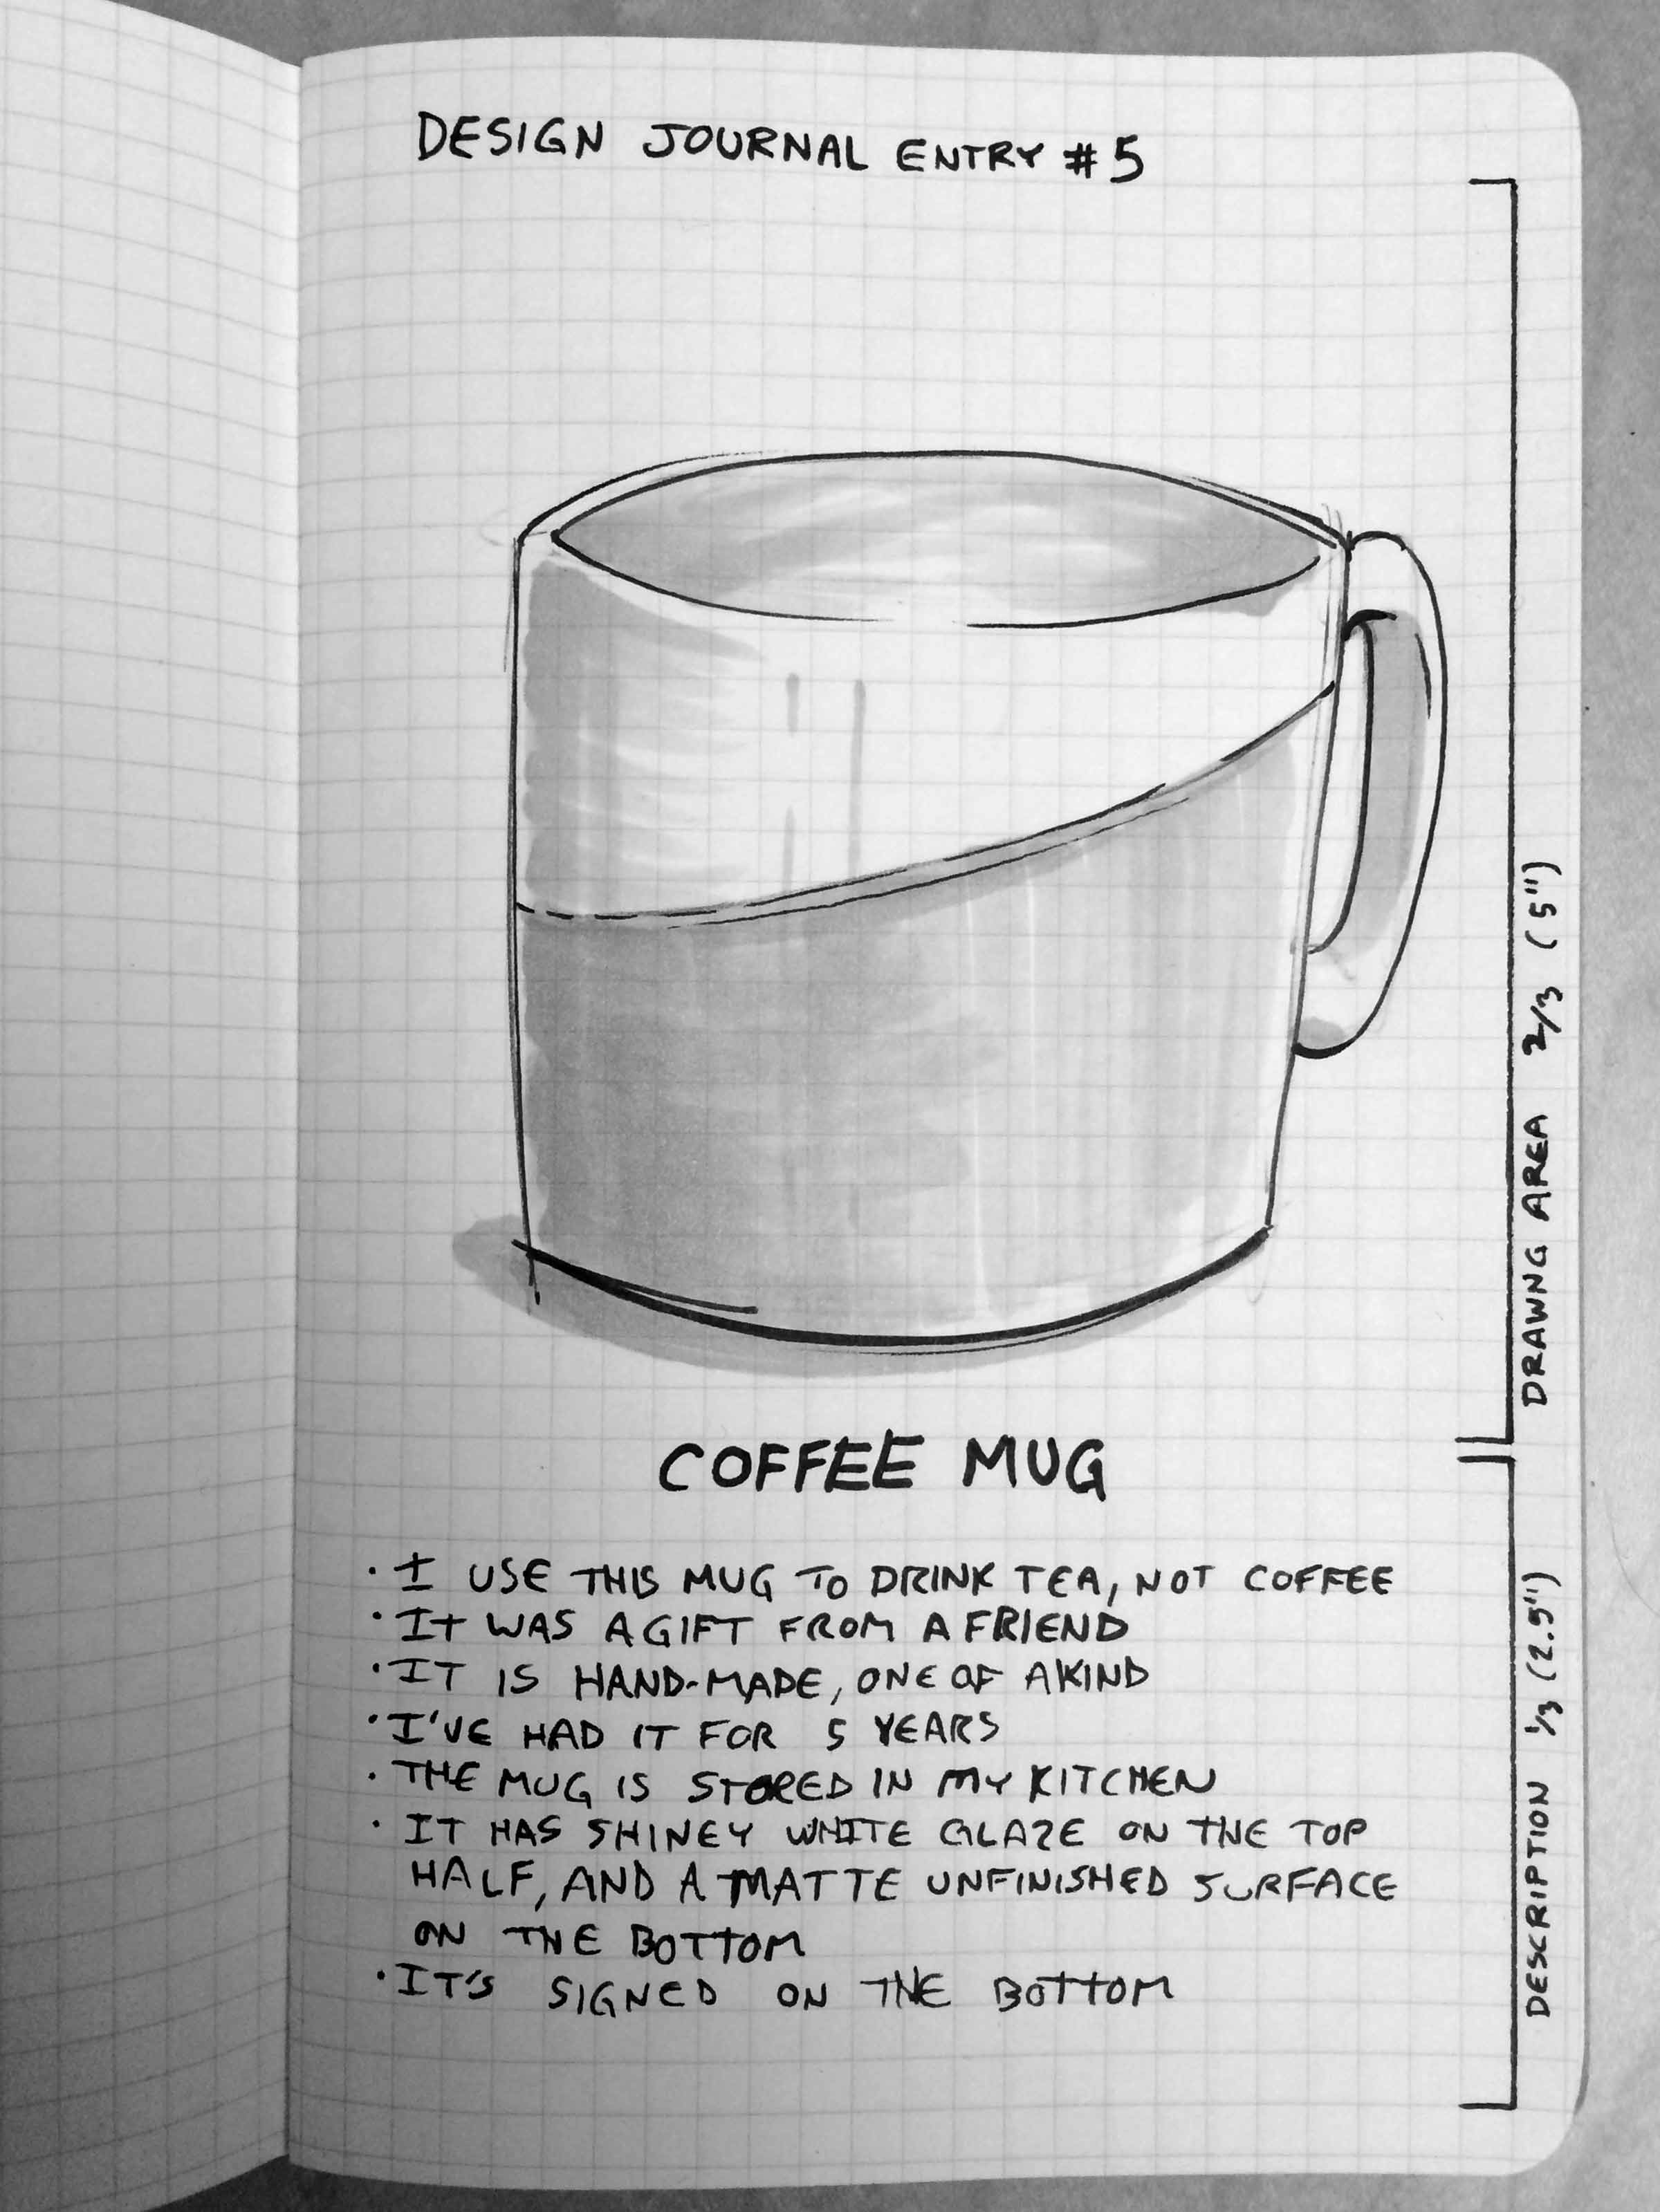 DESIGN JOURNAL ENTRY #5
COFFEE MUG
· I USE THIS MUG TO DRINK TEA, NOT COFFEE
· IT WAS A GIFT FROM A FRIEND
· IT IS HAND-MADE, ONE OF A KIND
· I'VE HAD IT FOR 5 YEARS
· THE MUG IS STORED IN MY KITCHEN
· IT HAS SHINEY WHITE GLAZE ON THE TOP
HALF, AND A MATTE UNFINISHED SURFACE
ON THE BOTTOM
· IT'S SIGNED ON THE BOTTOM
DRAWNG AREA 2/3 (5")
DESCRIPTION 1/3 (2.5")